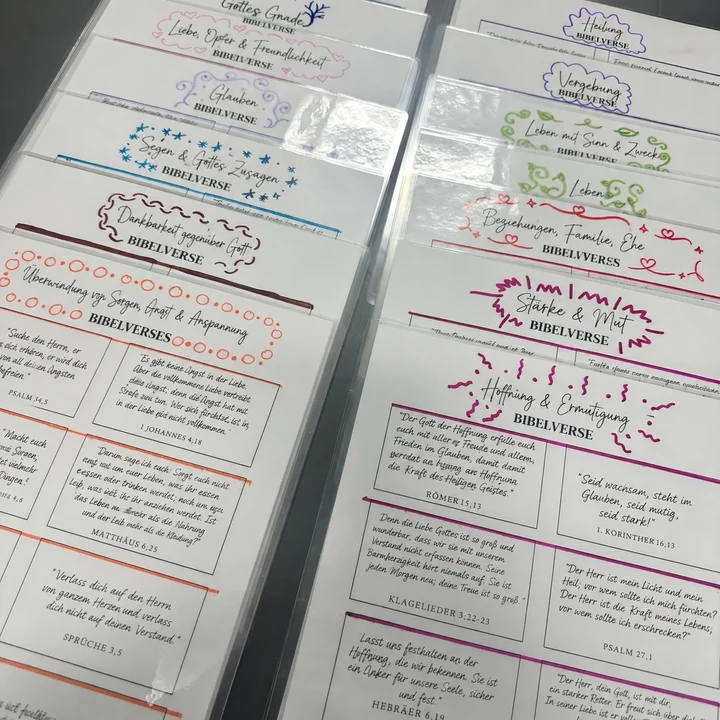 Gottes Gnade
BIBELVERSE
Liebe, Opfer & Freundlichkeit
BIBELVERSE
Glauben
BIBELVERSE
Segen & Gottes Zusagen
BIBELVERSE
Dankbarkeit gegenüber Gott
BIBELVERSE
Überwindung von Sorgen, Angst & Anspannung
BIBELVERSES
"Suche den Herrn, er
dich erhören, er wird dich
von all deinen Ängsten
befreien."
PSALM 34,5
"Es gibt keine Angst in der Liebe.
Aber die vollkommene Liebe vertreibt
die Angst, denn die Angst hat mit
Strafe zu tun. Wer sich fürchtet, ist in
in der Liebe nicht vollkommen."
1 JOHANNES 4;18
"Macht euch
Sorgen;
vielmehr
Dingen!
4,6
Darum sage ich euch: Sorgt euch nicht
um euer Leben, was ihr essen
oder trinken werdet, noch um
leib, was ihr anziehen werdet. Ist
das Leben mehr als die Nahrung
und der Leib mehr als die Kleidung?"
MATTHÄUS 6,25
"Verlass dich auf den Herrn
von ganzem Herzen und verlass
dich nicht auf deinen Verstand."
SPRÜCHE 3,5
Heilung
BIBELVERSE
Vergebung
BIBELVERSE
Leben mit Sinn & Zweck
BIBELVERSE
Leben
Beziehungen, Familie, Ehe
BIBELVVERSS
Stärke & Mut
BIBELVERSE
Hoffnung & Ermutigung
BIBELVERSE
"Der Gott der Hoffnung erfülle euch
euch mit aller Freude und allem
Frieden im Glauben, damit damit
an Hoffnung
die Kraft des Heiligen Geistes."
RÖMER 15;13
"Seid wachsam, steht im
Glauben, seid mutig,
seid stark!"
1. KORINTHER 16;13
Denn die Liebe Gottes ist so groß und
wunderbar, dass wir sie mit unserem
Verstand nicht erfassen können. Seine
Barmherzigkeit hört niemals auf. Sie ist
jeden Morgen neu; deine Treue ist so groß."
KLAGELIEDER 3:22-23
"Der Herr ist mein Licht und mein
Heil; vor wem sollte ich mich fürchten?
Der Herr ist die Kraft meines Lebens;
vor wem sollte ich erschrecken?"
PSALM 27,1
Lasst uns festhalten an der
Hoffnung, die wir bekennen. Sie ist
ein Anker für unsere Seele, sicher
und fest."
HEBRÄER 6,19
"Der Herr, dein Gott, ist mit dir,
ein starker Retter. Er freut sich über
In seiner Liebe ist er